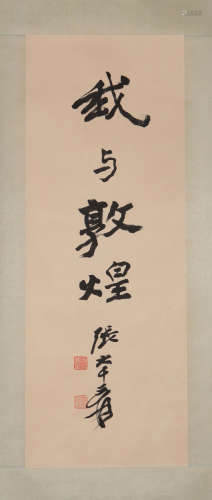 我与敦煌
張大千爰